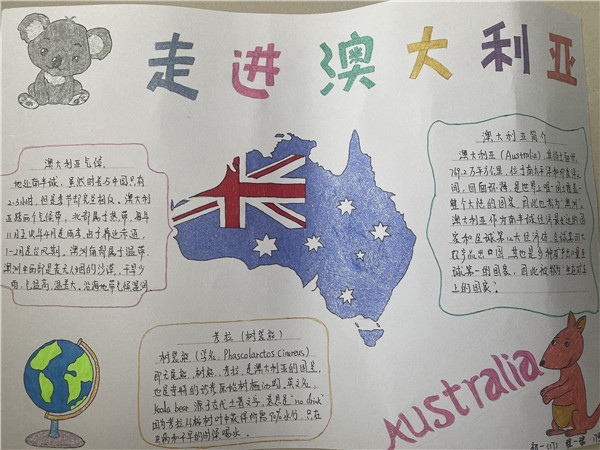 走进澳大利亚
澳大利亚气候
地处南半球，虽然时差与中国只有
2-3小时，但是季节却完全相反。澳大利
亚跨两个气候带，北部属于热带，每年
11月至次年4月是雨季，由于靠近赤道，
1-2月是台风期。澳洲南部属于温带。
澳洲中西部是荒无人烟的沙漠，干旱少
雨，气温高，温差大。沿海地带气候湿润
澳大利亚简介
澳大利亚（Australia），其领土面积
769.2万平方公里，位于南太平洋和印度洋之
间，四面环海，是世界上唯一国土覆盖一
整个大陆的国家，因此也称为"澳洲"。
澳大利亚作为南半球经济最发达的国
家和全球第12大经济体，全球第四大
农产品出口国，其也是多种矿产出口量全
球第一的国家，因此被称作"坐在矿车
上的国家"。
考拉（树袋熊）
树袋熊（学名：Phascolarctos Cinereus）
即无尾熊、树熊、考拉，是澳大利亚的国宝，
也是奇特的珍贵原始树栖动物。英文名
Koala bear 源于古代土著文字，意思是"no drink"
因为考拉从桉树叶中获得所需90%水分，只在
生病和干旱的时候喝水。
Australia